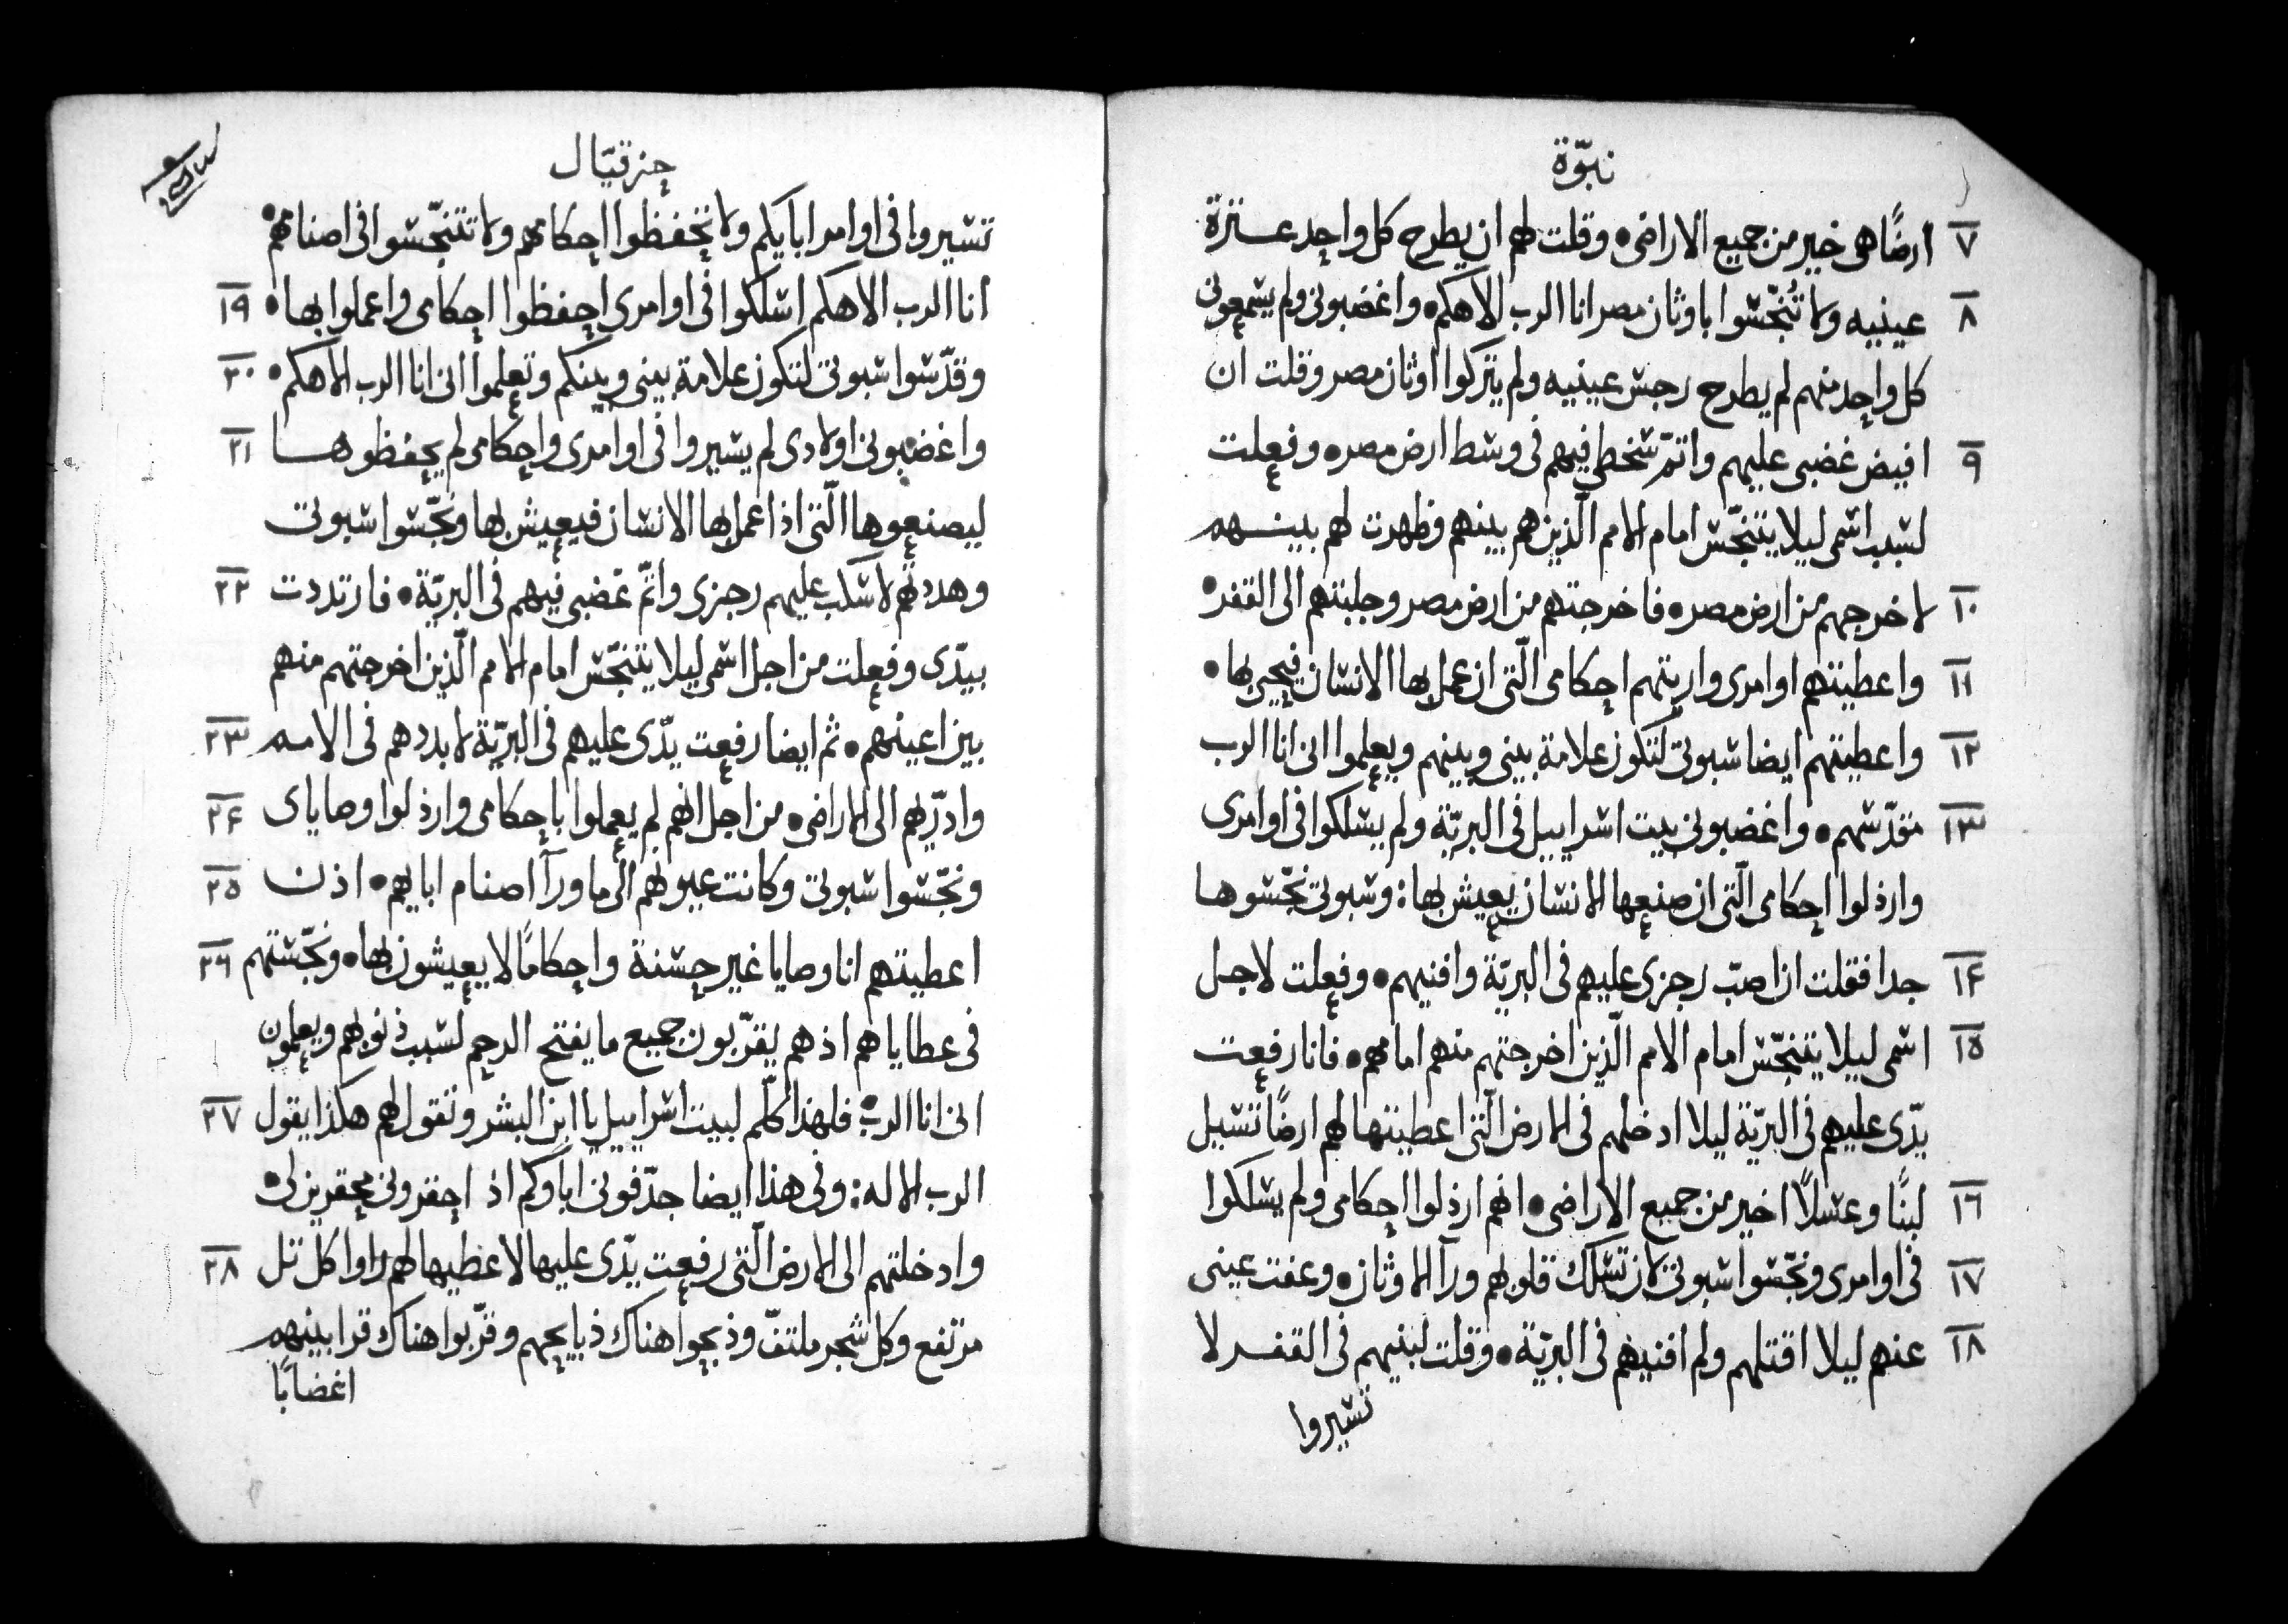 نبوّة
٧ ارضًا هى خير من جميع الاراضى • وقلت لهم ان يطرح كل واحد عـثرة
٨ عينيه ولا تُنجّسوا باوثان مصر انا الرب الاهكم • واغضبونى ولم يسمعونى
كل واحد منهم لم يطرح رجس عينيه ولم يتركوا اوثان مصر وقلت ان
٩ افيض غضبى عليهم واتمّ سخطى فيهم فى وسط ارض مصر • وفعلت
لسبب اسمى ليلا يتنجّس امام الامم الّذين هم بينهم وظهرت لهم بينـهم
١٠ لاخرجهم من ارض مصر • فاخرجتهم من ارض مصر وجلبتهم الى القفر •
١١ واعطيتهم اوامرى واريتهم احكامى الّتى ان عمل بها الانسان فيحيى بها •
١٢ واعطيتهم ايضا سبوتى لتكون علامة بينى وبينهم ويعلموا انى انا الرب
١٣ مقدّسهم • واغضبونى بيت اسراييل فى البريّة ولم يسلكوا فى اوامرى
وارذلوا احكامى الّتى ان صنعها الانسان يعيش بها : وسبوتى نجّسوها
١٤ جدا فقلت ان اصبّ رجزى عليهم فى البريّة وافنيهم • وفعلت لاجل
١٥ اسمى ليلا يتنجّس امام الامم الّذين اخرجتهم منهم امامهم • فانا رفعت
يدّى عليهم فى البريّة ليلا ادخلهم فى الارض الّتى اعطيتها لهم ارضًا تسيل
١٦ لبنًا وعسلاً اخير من جميع الاراضى • انهم ارذلوا احكامى ولم يسلكوا
١٧ فى اوامرى ونجّسوا سبوتى لان تسلك قلوبهم ورآ الاوثان • وعفت عينى
١٨ عنهم ليلا اقتلهم ولم افنيهم فى البريّة • وقلت لبنيهم فى القفـر لا
تسيروا
حزقيّال
تسيروا فى اوامر ابايكم ولا تحفظوا احكامهم ولا تتنجّسوا فى اصنامهم •
١٩ انا الرب الاهكم اسلكوا فى اوامرى احفظوا احكامى واعملوا بها •
٢٠ وقدّسوا سبوتى لتكون علامة بينى وبينكم وتعلموا انى انا الرب الاهكم •
٢١ واغضبونى اولادى لم يسيروا فى اوامرى واحكامى لم يحفظوهـا
ليصنعوها الّتى اذا عمل بها الانسان فيعيش بها ونجّسوا سبوتى
٢٢ وهددتهم لاسكب عليهم رجزى واتمّ غضبى فيهم فى البريّة • فارتددت
بيدّى وفعلت من اجل اسمى ليلا يتنجّس امام الامم الّذين اخرجتهم منهم
٢٣ بين اعينهم • ثم ايضا رفعت يدّى عليهم فى البريّة لابددهم فى الامـم
٢٤ واذرّيهم الى الاراضى • من اجل انهم لم يعملوا باحكامى وارذلوا وصاياى
٢٥ ونجّسوا سبوتى وكانت عيونهم الى ما ورآ اصنام ابايهم • اذن
٢٦ اعطيتهم انا وصايا غير حسنة واحكامًا لا يعيشون بها • ونجّستهم
فى عطاياهم اذ هم يقرّبون جميع ما يفتح الرحم لسبب ذنوبهم ويعلمون
٢٧ انى انا الرب • فلهذا كلّم لبيت اسراييل يا ابن البشر وتقول لهم هكذا يقول
الرب الاله : وفى هذا ايضا جدّفونى اباوكم اذ احقرونى محقرين لى •
٢٨ وادخلتهم الى الارض الّتى رفعت يدّى عليها لاعطيها لهم راوا كل تل
مرتفع وكل شجر ملتفّ وذبحوا هناك ذبايحهم وقرّبوا هناك قرابينهم
اغضابًا